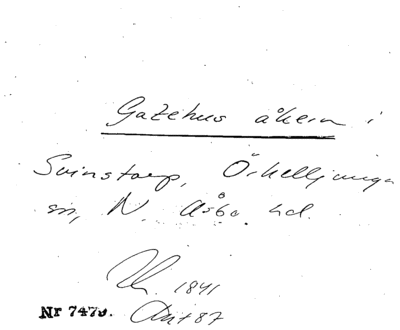 Gatehus åkern i
Svinstorp, Örkelljunga
sn, N. Åsbo hd.
1841
Nr 7479. Akt 87